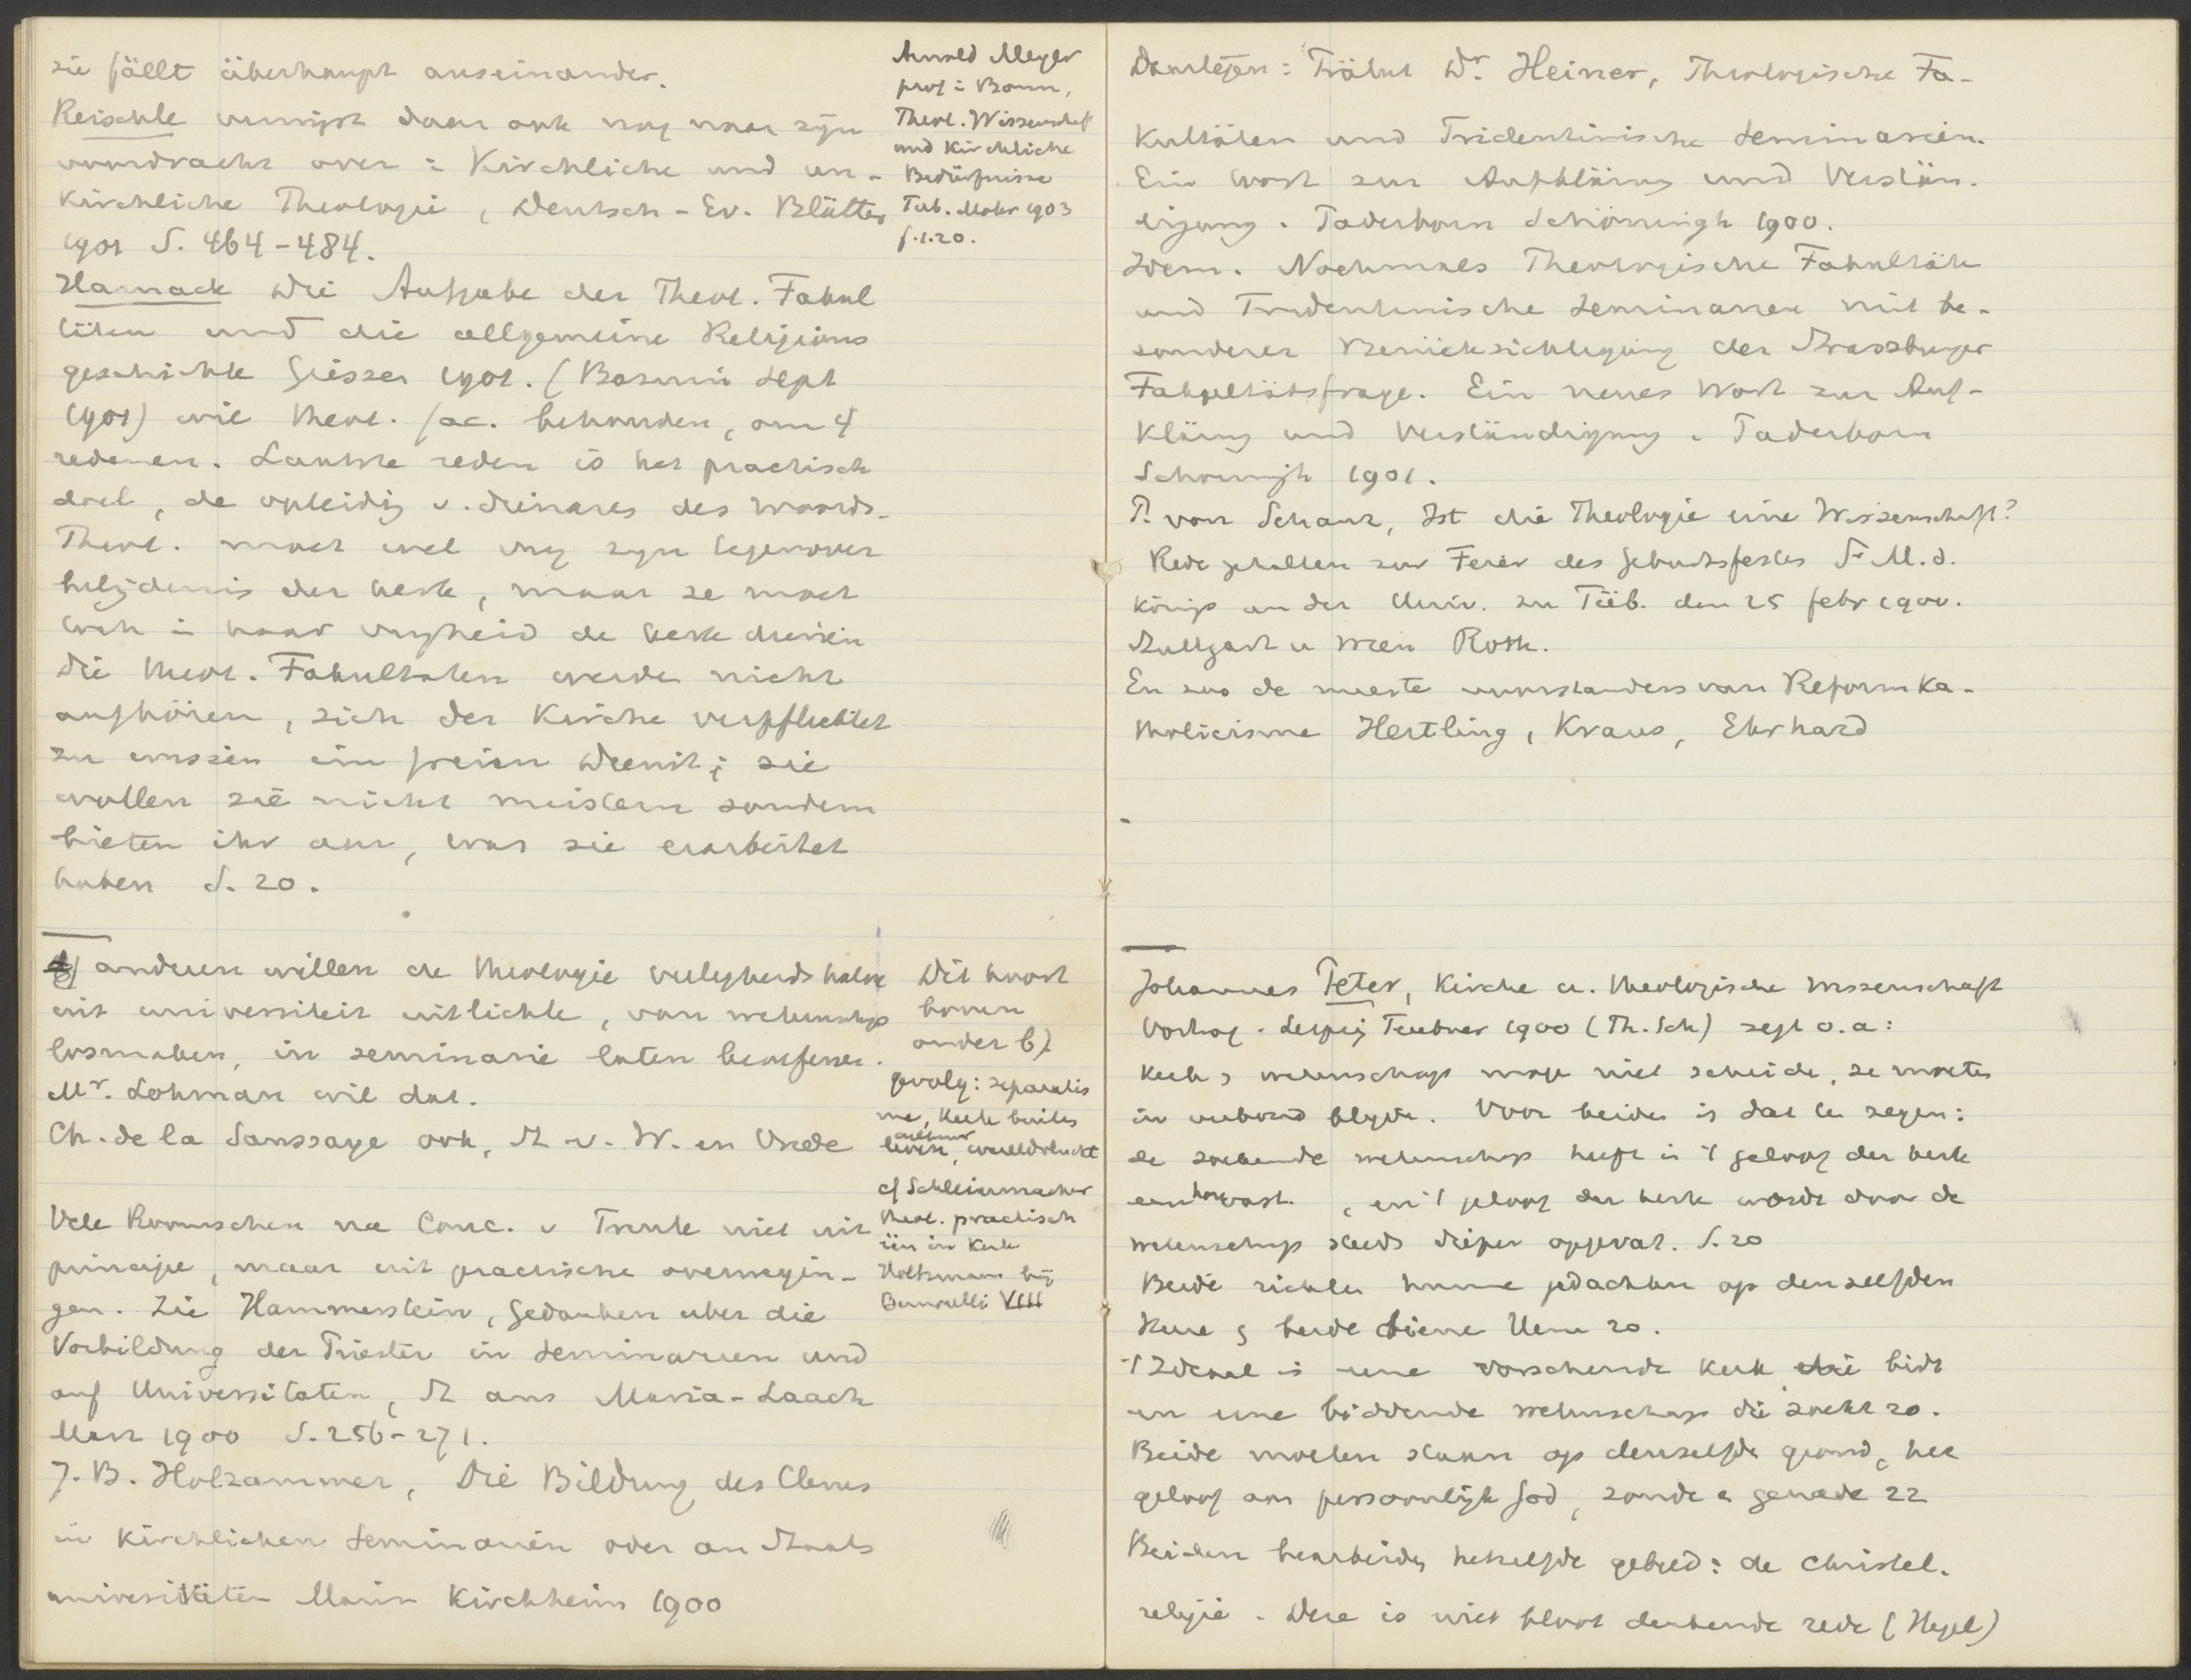 sie fällt überhaupt auseinander.
Reischle verwijst daar ook nog naar zijn
voordracht over : Kirchliche und un-
kirchliche Theologie, Deutsch-Ev. Blätter
1901 S. 464-484.
Harnack Die Aufgabe der Theol. Fakul
täten und die allgemeine Religions
geschichte Giessen 1901. ( Sept
1901) wil theol. fac. behouden, om 4
redenen. Laatste reden is het practisch
doel, de opleiding v. dienares des Woords.
Theol. moet wel vrij zijn tegenover
belijdenis der kerk, maar ze moet
toch in haar vrijheid de kerk dienen
Die theol. Fakultaten werden nicht
aufhören, sich der Kirche verpflichtet
zu wissen im freien Dienst; sie
wollen sie nicht meistern sondern
bieten ihr an, was sie erarbeitet
haben S. 20.
Arnold Meyer
prof in Bonn,
Theol. Wissenschaft
und Kirchliche
Bedürfnisse
Tub. Mohr 1903
f.1.20.
anderen willen de theologie veiligheidshalve
uit universiteit uitlichte, van wetenschap
losmaken, in seminarie laten beoefenen.
Mr. Lohman wil dat.
Ch. de la Saussaye ook, St v. W. en Vrede
Vele Roomschen na Conc. v Trente niet uit
principe, maar uit practische overwegin-
gen. Zie Hammerstein, Gedanken uber die
Vorbildung der Priester in Seminarien und
auf Universitaten, St aus Maria-Laach
Marz 1900 S. 256-271.
J. B. Holzammer, Die Bildung des Clerus
in Kirchlichen Seminarien oder an Staats
universitäten Mainz Kirchheim 1900
Dit hoort
boven
onder b)
gevolg: separatis
me, Kerk buiten
cultuur
leven, wereldvlucht
cf Schleiermacher
theol. practisch
één in Kerk
Holtzmann bij
Bernoulli VIII
Daartegen: Prälat Dr. Heiner, Theologische Fa-
kultäten und Tridentinische Seminarien.
Ein Wort zur Aufklärung und Verstän-
digung. Paderborn Schöningh 1900.
Idem. Nochmals Theologische Fakultäte
und Tridentinische Seminarien mit be-
sonderer Berücksichtigung der Strassburger
Fakultätsfrage. Ein neues Wort zur Auf-
klärung und Verständigung. Paderborn
Schoningh 1901.
P. von Schanz, Ist die Theologie eine Wissenschaft?
Rede gehalten zur Feier des Geburtsfestes S. M. d.
Königs an der Univ. zu Tüb. den 25 febr 1900.
Stuttgart u Wien Roth.
En zoo de meeste voorstanders van Reformka-
tholicisme Hertling, Kraus, Ehrhard
Johannes Peter, Kirche u. theologische Wissenschaft
Vortrag. Leipzig Teubner 1900 (Th. Sch) zegt o.a:
Kerk & wetenschap moge niet scheide, ze moeten
in verband blijve. Voor beiden is dat te zegen:
de zoekende wetenschap heeft in 't geloof der kerk
een vast, en 't geloof der kerk wordt door de
wetenschap steeds dieper opgevat. S. 20
Beide richten hunne gedachten op denzelfden
Heere & beide diene Hem 20.
't Ideaal is eene vorschende kerk die bidt
en eene biddende wetenschap die zoekt 20.
Beide moeten staan op denzelfde grond, het
geloof aan persoonlijk God, zonde & genade 22
Beiden bearbeiden hetzelfde gebied: de Christel.
religie. Deze is niet bloot denkende rede (Hegel)